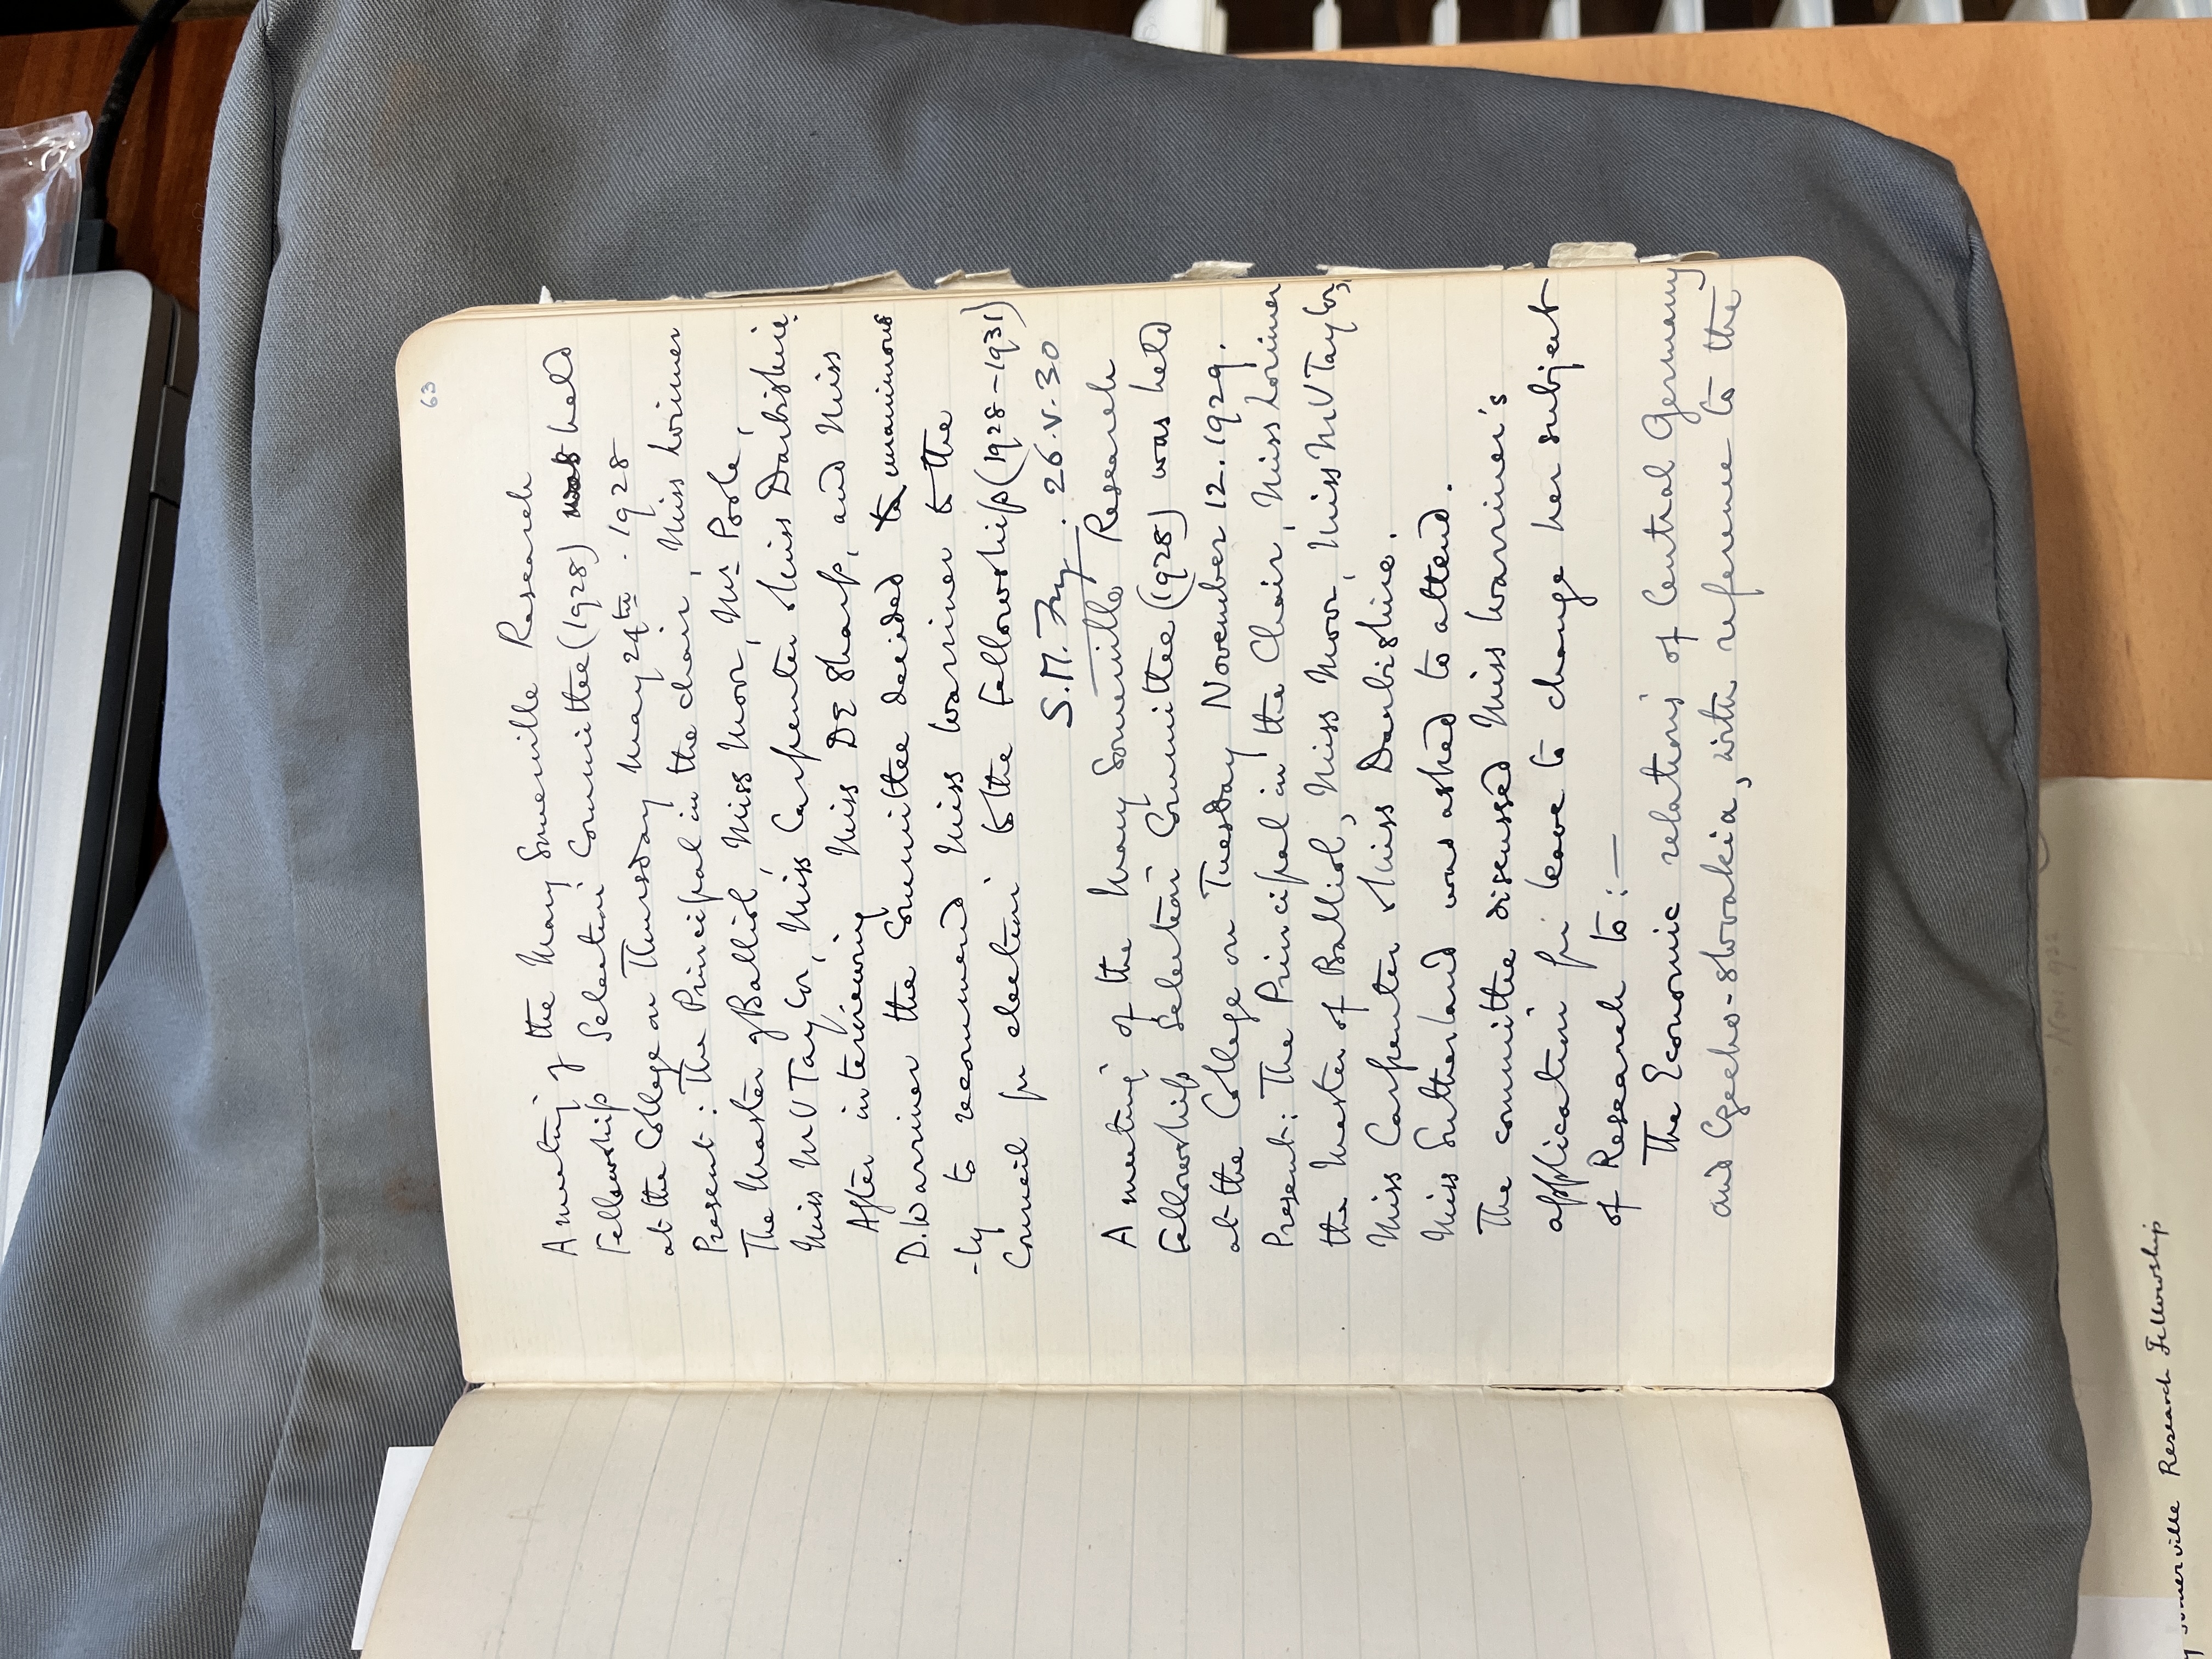 63
A meeting of the Mary Somerville Research
Fellowship Selection Committee (1928) was held
at the College on Thursday May 24th. 1928
Present: The Principal in the chair, Miss Lorimer
The Master of Balliol, Miss Moor, Mrs Poole,
Miss M V Taylor, Miss Carpenter & Miss Darbishire.
After interviewing Miss D E Sharp, and Miss
D. Warriner the Committee decided to unanimous
-ly to recommend Miss Warriner to the
Council for election to the Fellowship (1928-1931)
S. M. Fry. 26.V.30
A meeting of the Mary Somerville Research
Fellowship Selection Committee (1928) was held
at the College on Tuesday November 12. 1929.
Present: The Principal in the Chair, Miss Lorimer
the Master of Balliol, Miss Moor, Miss M V Taylor,
Miss Carpenter & Miss Darbishire.
Miss Sutherland was asked to attend.
The committee discussed Miss Warriner's
application for leave to change her subject
of Research to:—
The Economic relations of Central Germany
and Czecho-slovakia, with reference to the
Somerville Research Fellowship